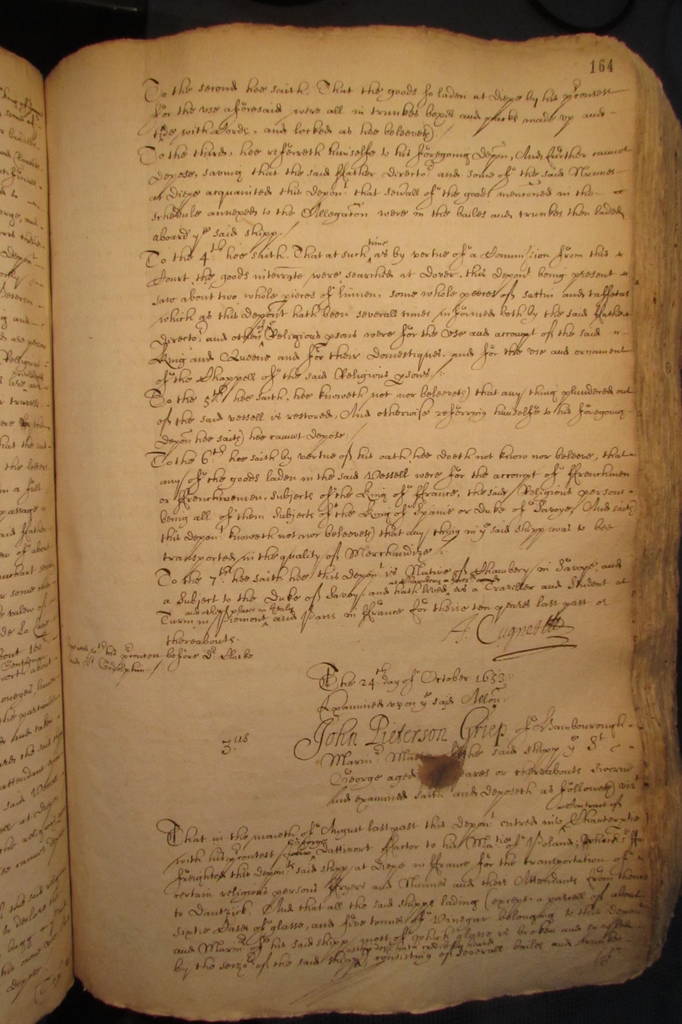 164
To the second hee saith That the goods so laden at Diepe by his
for the use aforesaid were all in trunkes boxes and packs made up and
with Cords, and locked as hee beleeveth
To the third, hee referreth himselfe to his foregoing depon, And further cannot
depose, saving that the said ffather director and some of the said Nunnes
at Diepe acquainted this depont that severall of the goods mentioned in the
schedule annexed to the Allegation were in the bailes and trunkes then laden
aboard ye said shipp
time
To the 4th hee saith That at such as by vertue of a Commission from this
Court the goods interrate were searched at Dover, this depont being present
saw about two whole pieces of linnen, some whole peeces of sattin and taffatas
which as this depont hath been severall times informed both by the said ffather
Director and other Religious persons were for the use and accompt of the said
King and Queene and for their domestiques, and for the use and ornament
of the Chappell of the said Religious persons
To the 5th hee saith, hee knoweth not nor beleeveth that any thing plundered out
of the said vessell is restored, And otherwise referring himselfe to his foregoing
depon hee saith hee cannot depose
To the 6th hee saith by vertue of his oath hee doeth not know nor beleeve, that
any of the goods laden in the said Vessell were for the accompt of ffrenchmen
or ffrenchwemen subjects of the King of ffrance, the said Religious persons
being all of them subjects of the King of Spaine or Duke of Savoye, And saith
this depont knoweth not nor beleeveth that any thing in ye said shipp was to bee
transported in the quality of Merchandize
To the 7th hee saith hee this depont is Native of Chambery in Savoye, and
a subject to the Duke of Savoy, and hath lived as a Traveller and Student at
Turin in Piemont and Paris in ffrance for theise ten yeares last past or
thereabouts
before Dr. Clarke
A Cugnet
The 24th day of October 1653
Examined upon ye said Allon
John Pieterson Griep of Hambourough
3us
Marinr the said shipp ye St
George aged yeares or thereabouts sworne
and examined saith and deposeth as followeth vizt
That in the moneth of August last past this depont entred into Charterpartie
with ffactor to his Matie of Poland,
freighted this deponts said shipp at Diepe in ffrance for the transportation of
certain religious persons ffryers and Nunnes and their Attendants from thence
to Dantzick. And that all the said shipps lading (except a parcell of about
sixtie Cases of glasse, and five tonnes of Vinegar belonging to this depont
and Marinrs of his said shipp, most of which glasse is broken and
by the seizrs of the said shipp) consisting of severall bailes and trunkes